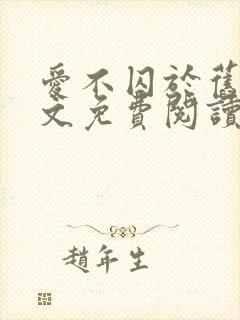 愛不囚於舊
文免費閱讀
趙年生